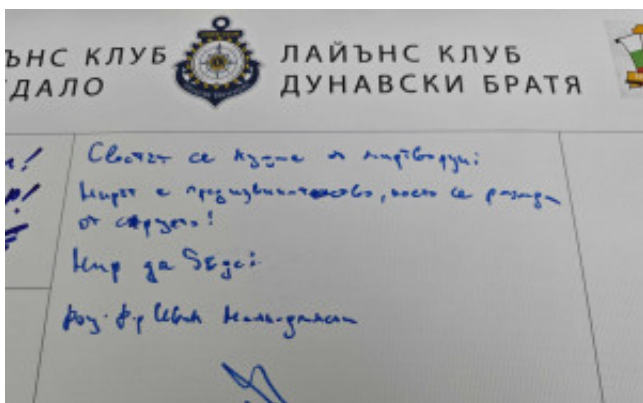 ЪНС КЛУБ
ДАЛО
ЛАЙЪНС КЛУБ
ДУНАВСКИ БРАТЯ
Светът се нуждае от миротворци!
Мирът е предизвикателство, което се ражда
от сърцето!
Мир да бъде!
Доц. д-р Иван